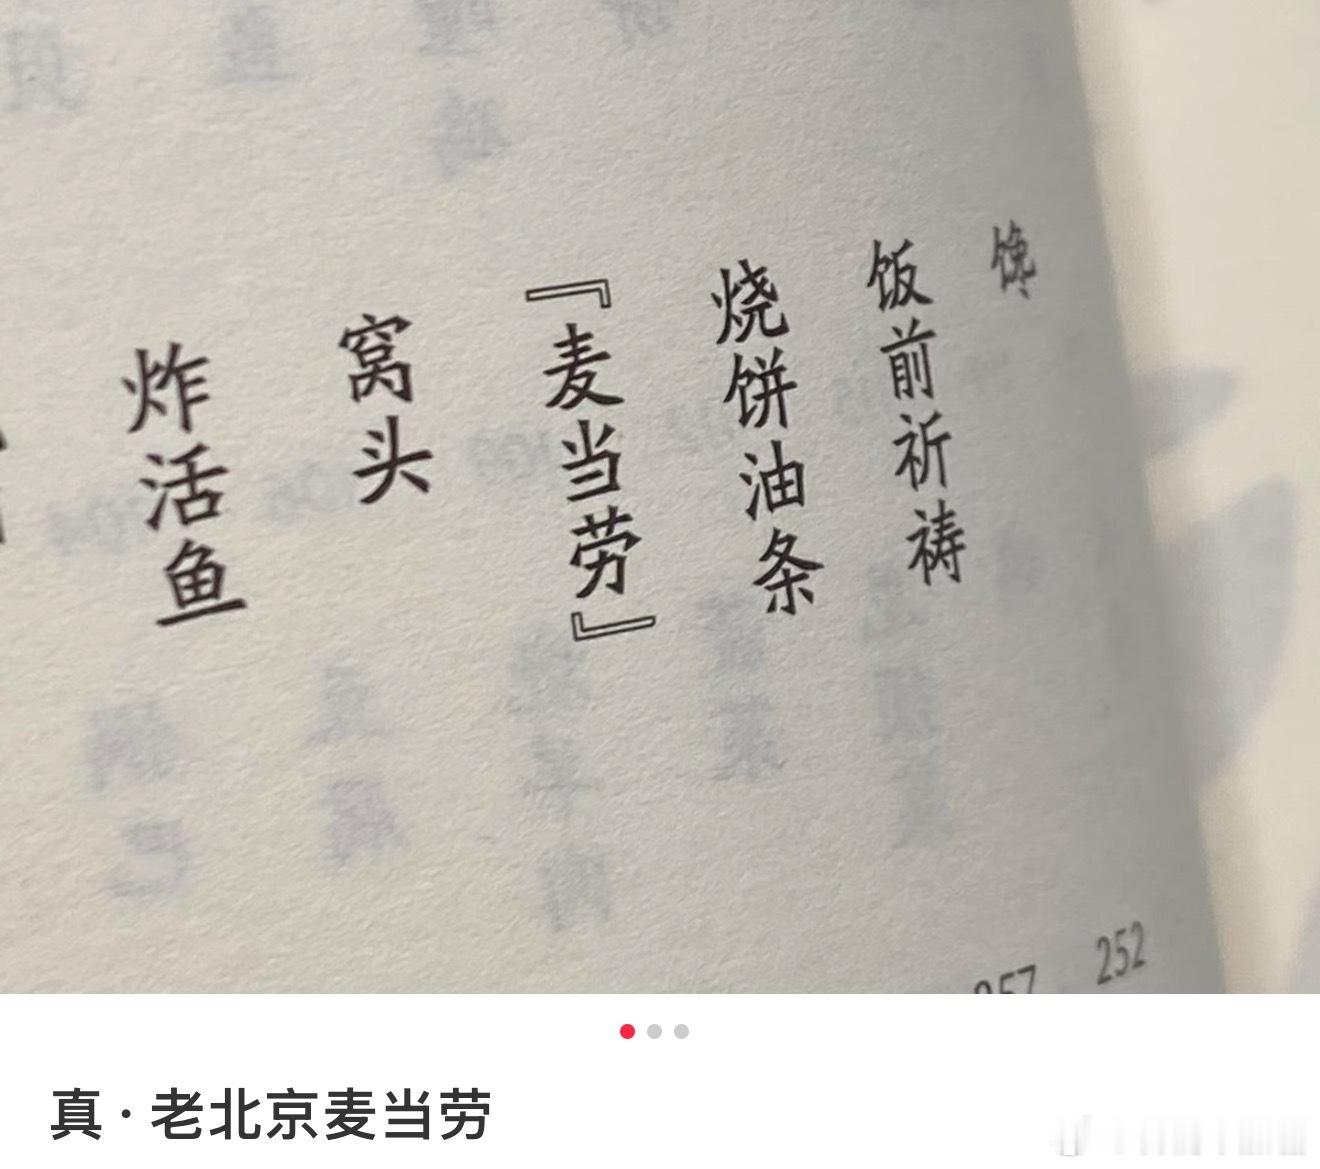 馋
饭前祈祷
烧饼油条
『麦当劳』
窝头
炸活鱼
252
真·老北京麦当劳